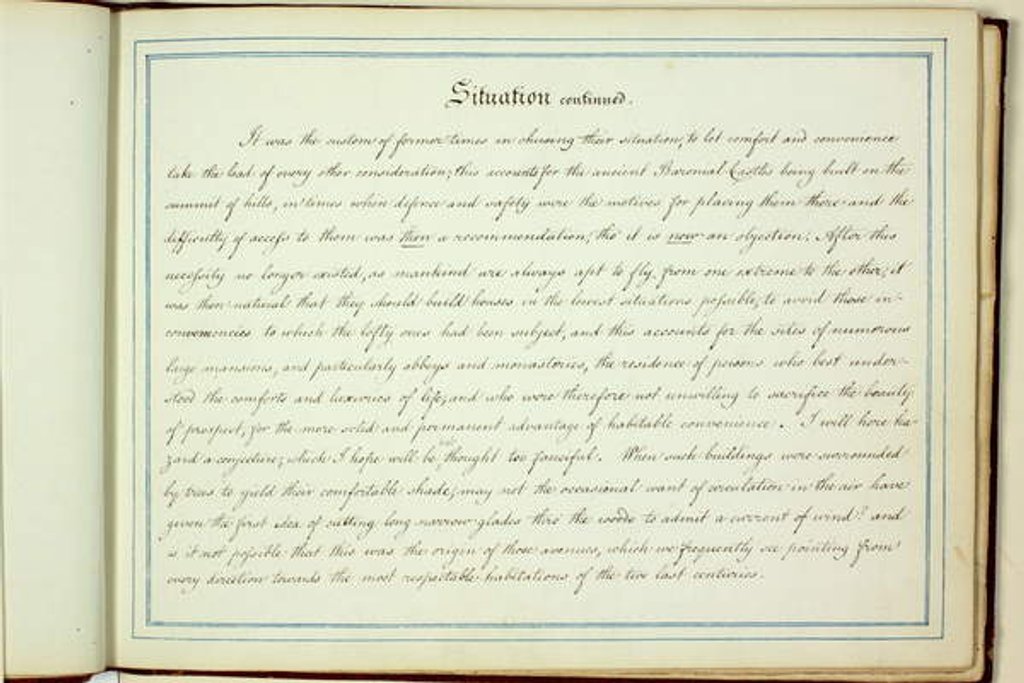 Situation continued.
It was the custom of former times in chusing their situation, to let comfort and convenience
take the lead of every other consideration; this accounts for the ancient Baronial Castles being built on the
summit of hills, in times when defence and safety were the motives for placing them there and the
difficulty of access to them was then a recommendation; tho' it is now an objection: After this
necessity no longer existed, as mankind are always apt to fly from one extreme to the other, it
was then natural that they should build houses in the lowest situations possible, to avoid those in-
conveniencies to which the lofty ones had been subject, and this accounts for the sites of numerous
large mansions, and particularly abbeys and monasteries, the residence of persons who best under-
stood the comforts and luxuries of life, and who were therefore not unwilling to sacrifice the beauty
of prospect, for the more solid and permanent advantage of habitable convenience. I will here ha-
zard a conjecture, which I hope will be not thought too fanciful. When such buildings were surrounded
by trees to yield their comfortable shade, may not the occasional want of circulation in the air have
given the first idea of cutting long narrow glades thro' the woods to admit a current of wind? and
is it not possible that this was the origin of those avenues, which we frequently see pointing from
every direction towards the most respectable habitations of the two last centuries.